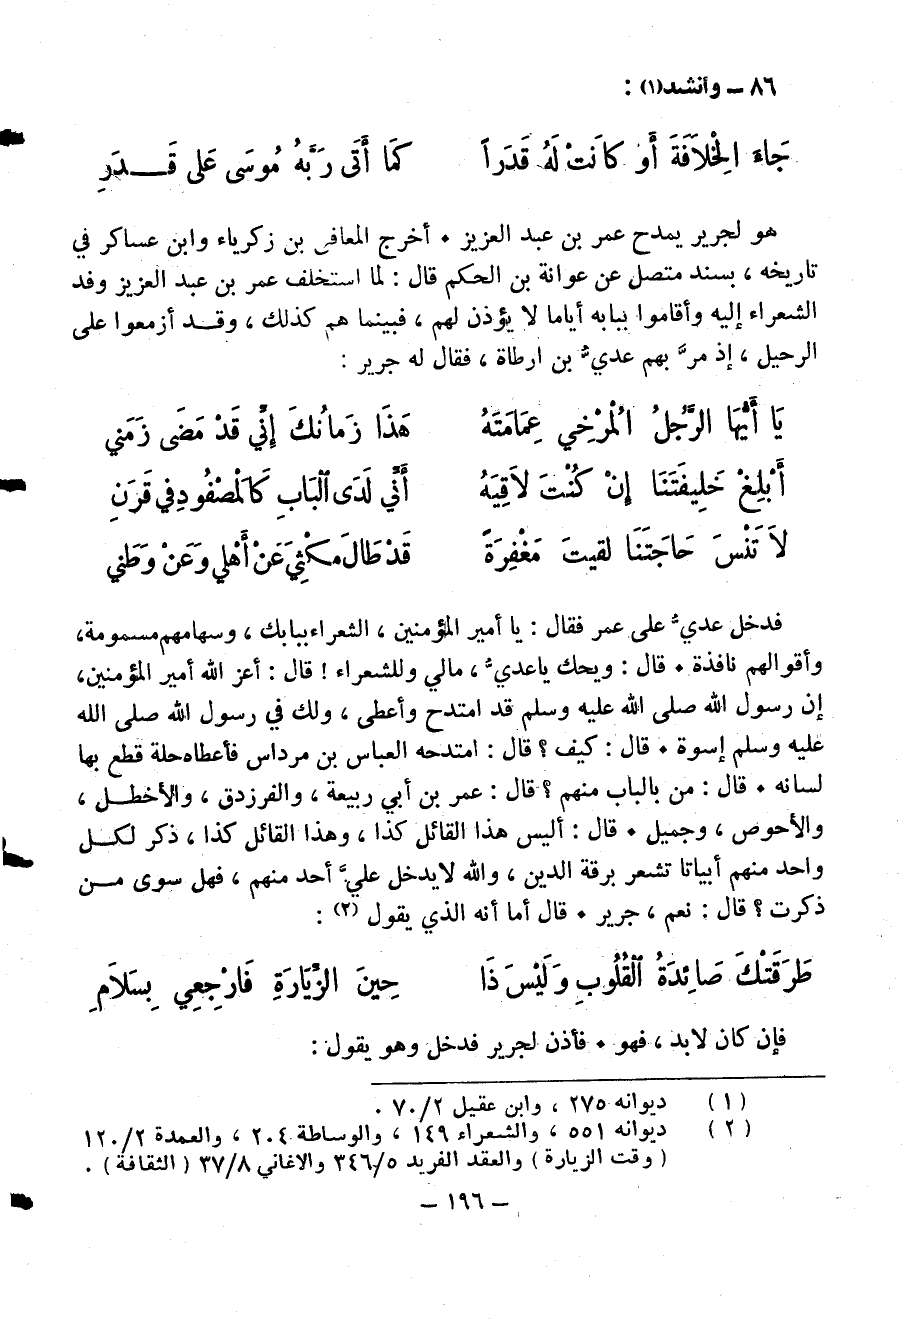 ٨٦ ــ وأنشد(١) :
جَاءَ الْخِلَافَةَ أَوْ كَانَتْ لَهُ قَدَراً     كَمَا أَتَى رَبَّهُ مُوسَى عَلَى قَــدَرِ
هو لجرير يمدح عمر بن عبد العزيز • أخرج المعافى بن زكرياء وابن عساكر في
تاريخه ، بسند متصل عن عوانة بن الحكم قال : لما استخلف عمر بن عبد العزيز وفد
الشعراء إليه وأقاموا ببابه أياما لا يؤذن لهم ، فبينما هم كذلك ، وقــد أزمعوا على
الرحيل ، إذ مرَّ بهم عديُّ بن ارطاة ، فقال له جرير :
يَا أَيُّهَا الرَّجُلُ الْمُرْخِي عِمَامَتَهُ     هَذَا زَمَانُكَ إِنِّي قَدْ مَضَى زَمَنِي
أَبْلِغْ خَلِيفَتَنَا إِنْ كُنْتَ لَاقِيَهُ     أَنِّي لَدَى الْبَابِ كَالْمَصْفُودِ فِي قَرَنِ
لَا تَنْسَ حَاجَتَنَا لقيتَ مَغْفِرَةً     قَدْ طَالَ مَكْثِيَ عَنْ أَهْلِي وَعَنْ وَطَنِي
فدخل عديُّ على عمر فقال : يا أمير المؤمنين ، الشعراء ببابك ، وسهامهم مسمومة،
وأقوالهم نافذة • قال : ويحك ياعديُّ ، مالي وللشعراء ! قال : أعز الله أمير المؤمنين،
إن رسول الله صلى الله عليه وسلم قد امتدح وأعطى ، ولك في رسول الله صلى الله
عليه وسلم إسوة • قال : كيف ؟ قال : امتدحه العباس بن مرداس فأعطاه حلة قطع بها
لسانه • قال : من بالباب منهم ؟ قال : عمر بن أبي ربيعة ، والفرزدق ، والأخطــل ،
والأحوص ، وجميل • قال : أليس هذا القائل كذا ، وهذا القائل كذا ، ذكر لكــل
واحد منهم أبياتا تشعر برقة الدين ، والله لايدخل عليَّ أحد منهم ، فهل سوى مــن
ذكرت ؟ قال : نعم ، جرير • قال أما أنه الذي يقول (٢) :
طَرَقَتْكَ صَائِدَةُ الْقُلُوبِ وَلَيْسَ ذَا     حِينَ الزِّيَارَةِ فَارْجِعِي بِسَلَامِ
فإن كان لابد ، فهو • فأذن لجرير فدخل وهو يقول :
(١) ديوانه ٢٧٥ ، وابن عقيل ٧٠/٢ .
(٢) ديوانه ٥٥١ ، والشعراء ١٤٩ ، والوساطة ٢٠٤ ، والعمدة ١٢٠/٢
( وقت الزيارة ) والعقد الفريد ٣٤٦/٥ والاغاني ٣٧/٨ ( الثقافة ) .
ــ ١٩٦ ــ